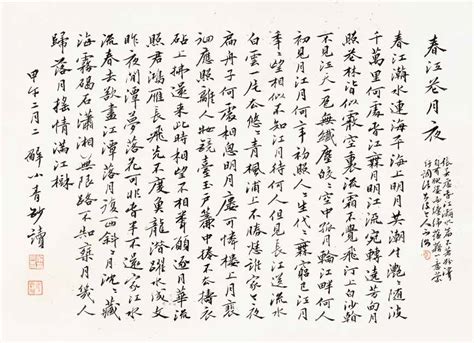 春江花月夜
春江潮水連海平海上明月共潮生灧々隨波
千萬里何處春江無月明江流宛轉遶芳甸月
照花林皆似霰空裏流霜不覺飛汀上白沙看
不見江天一色無纖塵皎々空中孤月輪江畔何人
初見月江月何年初照人人生代々無窮已江月
年々望相似不知江月待何人但見長江送流水
白雲一片去悠々青楓浦上不勝愁誰家今夜
扁舟子何處相思明月樓可憐樓上月裴
回應照離人妝鏡臺玉戶簾中捲不去擣衣
砧上拂還來此時相望不相聞願逐月華流
照君鴻雁長飛光不度魚龍潛躍水成文
昨夜閒潭夢落花可憐春半不還家江水
流春去欲盡江潭落月復西斜斜月沈々藏
海霧碣石瀟湘無限路不知乘月幾人
歸落月搖情滿江樹
甲午二月二解小青抄讀